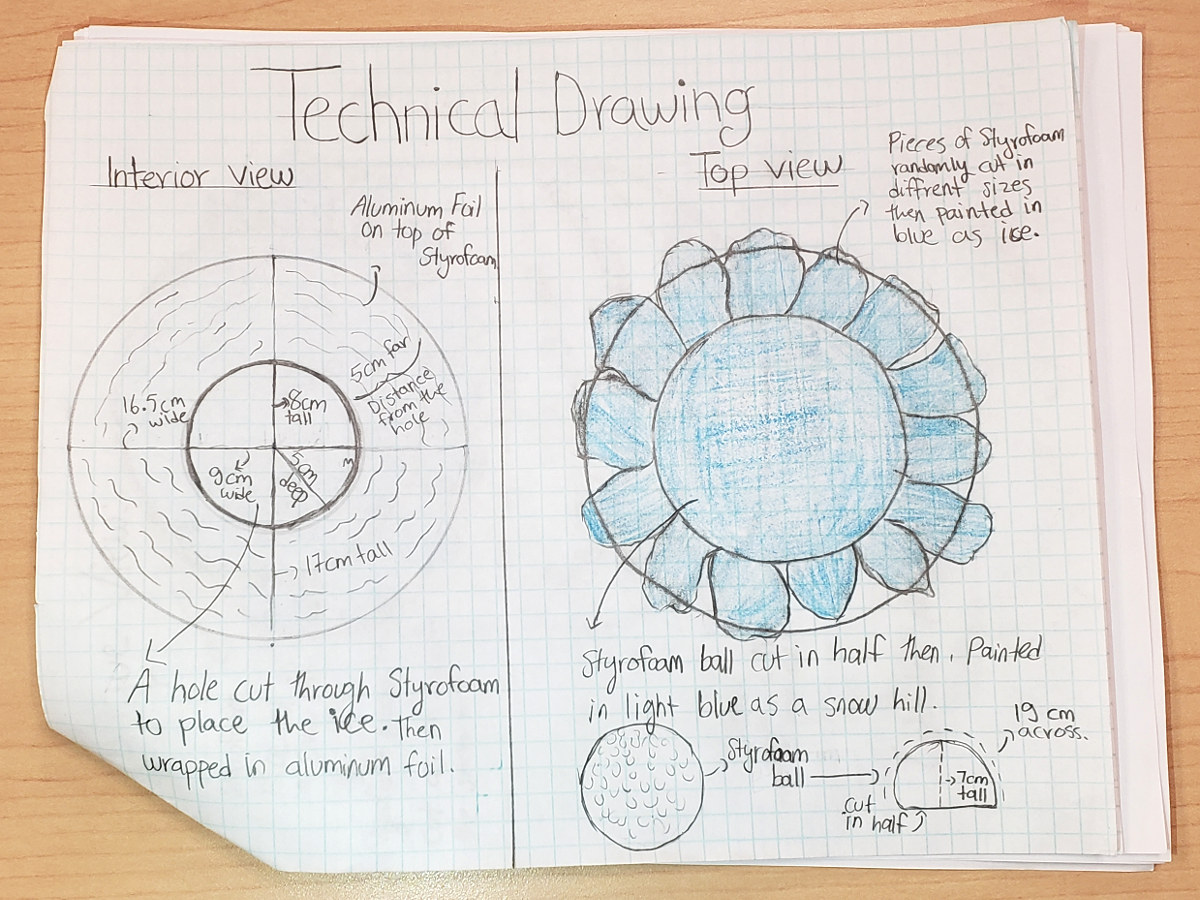 Technical Drawing
Interior view
Aluminum Foil
on top of
Styrofoam
5cm far
Distance
from the
hole
16.5cm
wide
8cm
tall
9cm
wide
5cm
deep
17cm tall
A hole cut through Styrofoam
to place the ice. Then
wrapped in aluminum foil.
Top view
Pieces of Styrofoam
randomly cut in
diffrent sizes
then painted in
blue as ice.
Styrofoam ball cut in half then. Painted
in light blue as a snow hill.
Styrofoam
ball
cut
in half
7cm
tall
19 cm
across.